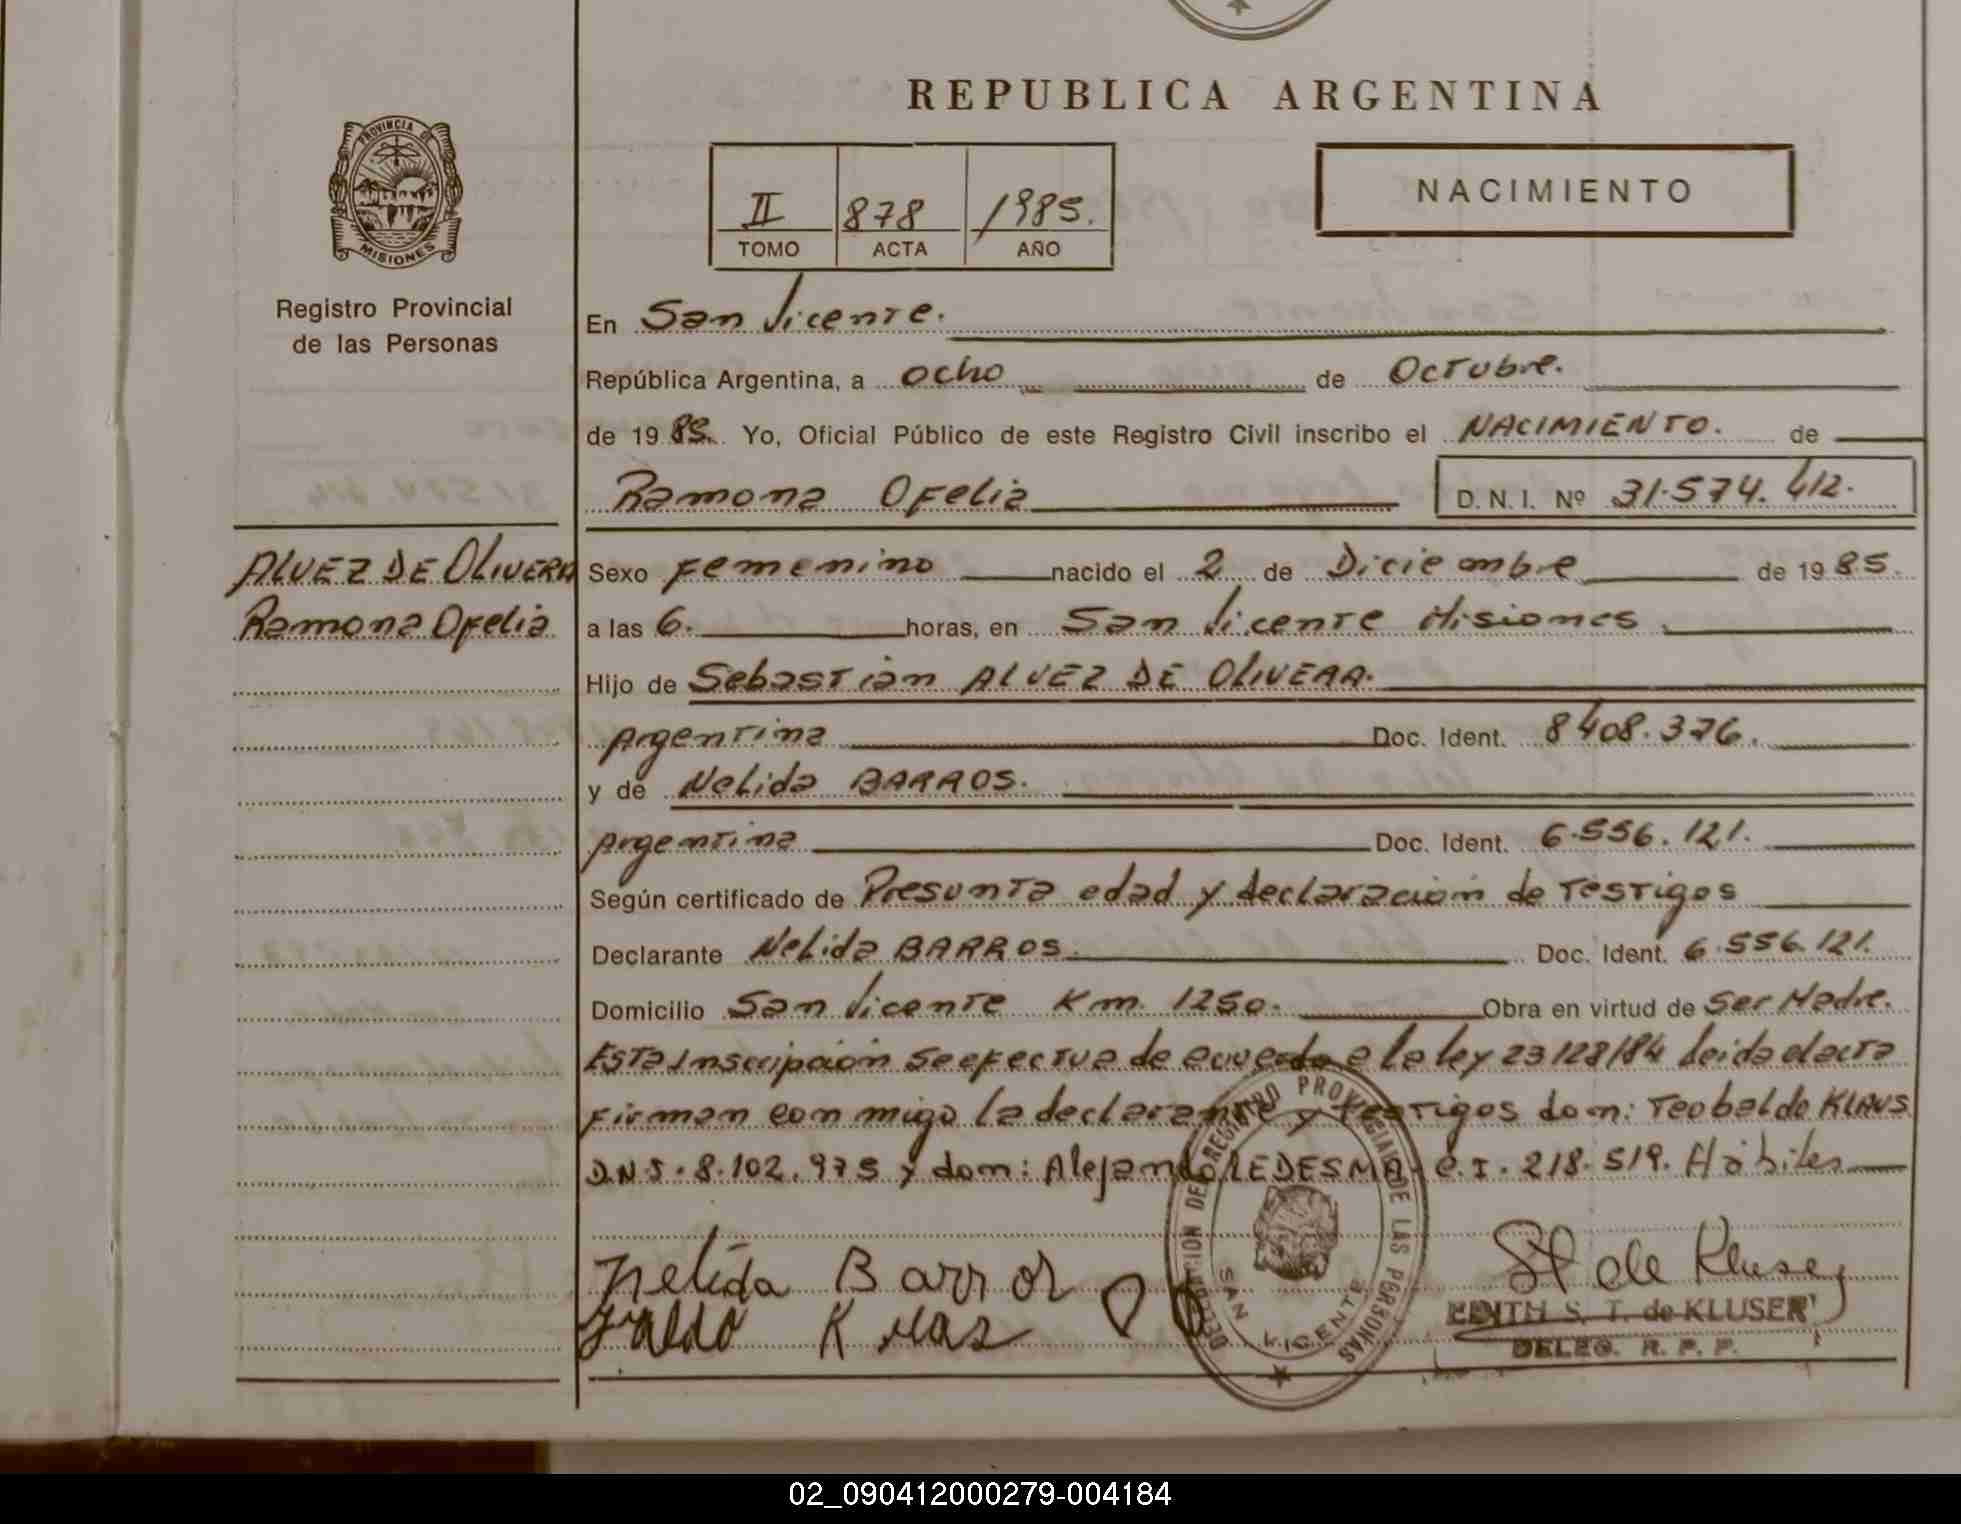 REPUBLICA ARGENTINA
PROVINCIA DE
MISIONES
Registro Provincial
de las Personas
II 878 1985.
TOMO ACTA AÑO
NACIMIENTO
En San Vicente.
República Argentina, a ocho de Octubre.
de 1985. Yo, Oficial Público de este Registro Civil inscribo el NACIMIENTO. de
Ramona Ofelia D.N.I. Nº 31.574.412.
ALVEZ DE OLIVERA
Ramona Ofelia
Sexo Femenino nacido el 2 de Diciembre de 1985.
a las 6. horas, en San Vicente Misiones
Hijo de Sebastián ALVEZ DE OLIVERA.
Argentina Doc. Ident. 8408.376.
y de Nelida BARROS.
Argentina Doc. Ident. 6.556.121.
Según certificado de Presunta edad y declaración de Testigos
Declarante Nelida BARROS. Doc. Ident. 6.556.121.
Domicilio San Vicente Km. 1250. Obra en virtud de Ser Madre.
Esta Inscripción se efectua de acuerdo a la ley 23128/84 leida el acta
firman con migo la declarante y testigos don: Teobaldo KLAUS
D.N.I. 8.102.975 y don: Alejandro LEDESMA C.I. 218.519. Hábiles
Nelida Barros
St de Kluser
EDITH S. T. de KLUSER
DELEG. R. P. P.
DELEGACION DEL REGISTRO PROVINCIAL DE LAS PERSONAS
SAN VICENTE
02_090412000279-004184